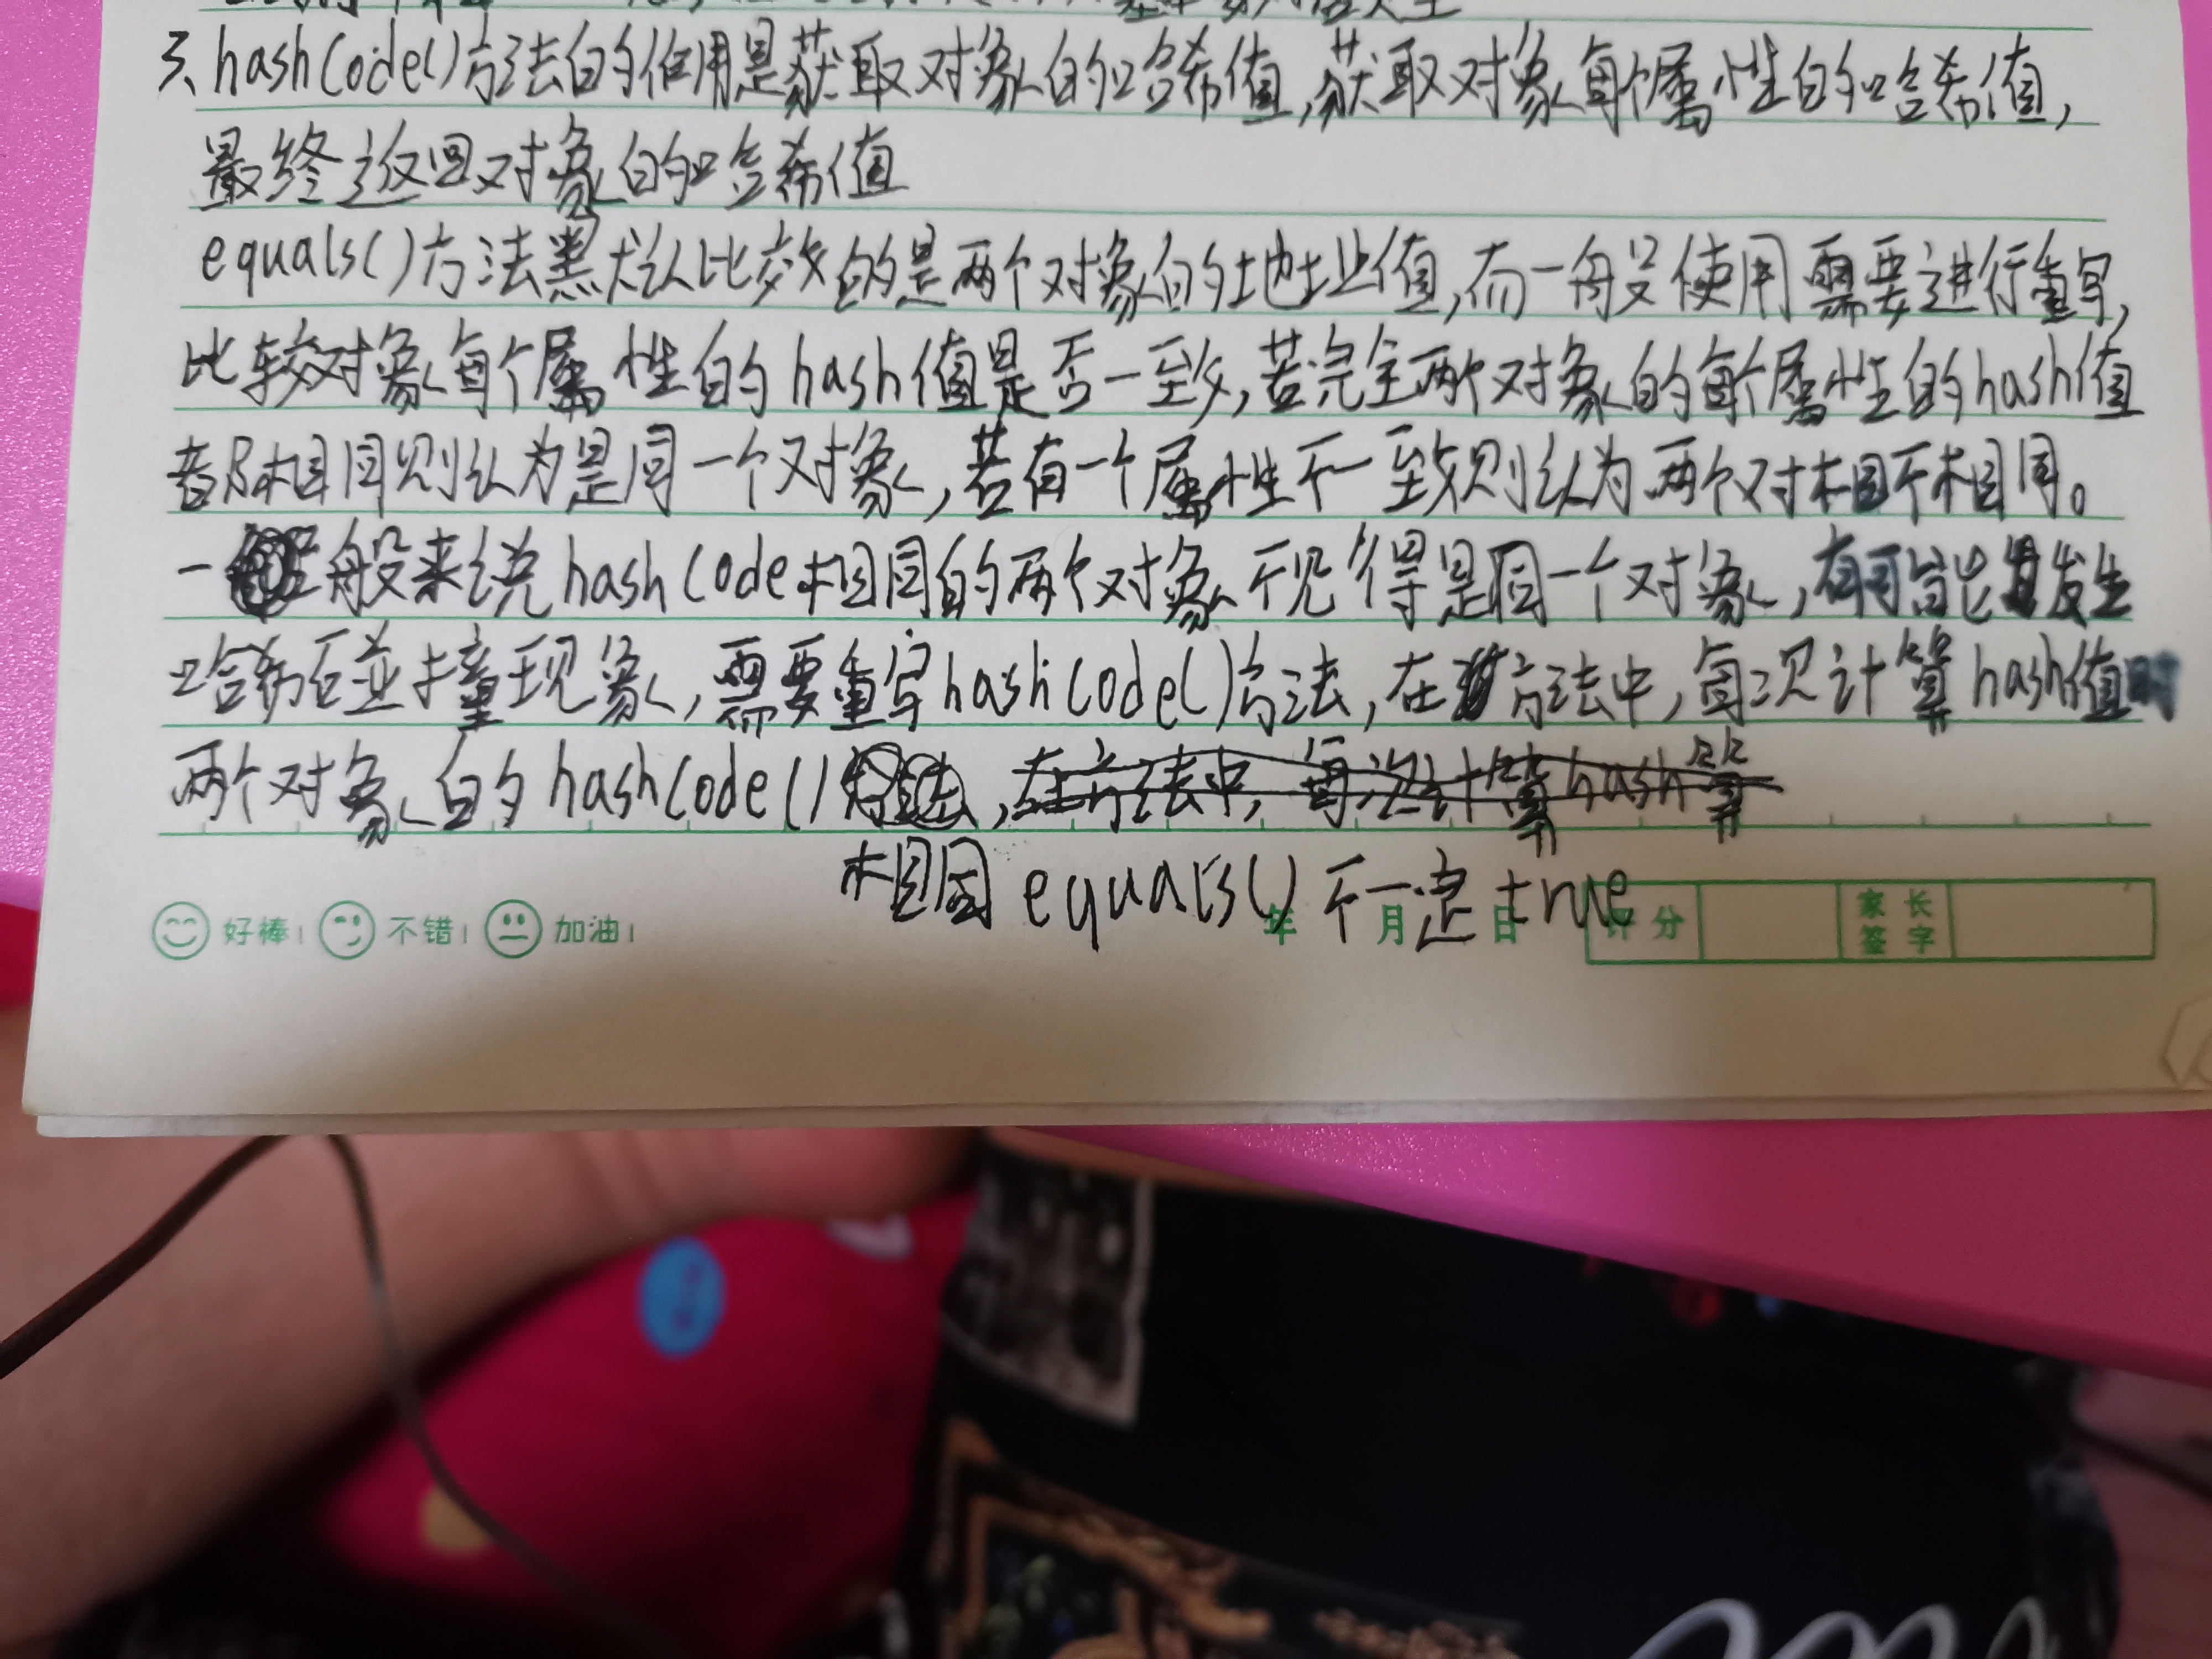 3、hashCode()方法的作用是获取对象的哈希值,获取对象每个属性的哈希值,
最终返回对象的哈希值
equals()方法默认比较的是两个对象的地址值,而一般使用需要进行重写,
比较对象每个属性的hash值是否一致,若完全两个对象的每个属性的hash值
都相同则认为是同一个对象,若有一个属性不一致则认为两个对相不相同。
一般来说hashCode相同的两个对象不见得是同一个对象,有可能发生
哈希碰撞现象,需要重写hashCode()方法,在方法中,每次计算hash值时
两个对象的hashCode(),在方法中,每次计算hash算
相同equals()不一定true
好棒! 不错! 加油! 年 月 日 评分 家长签字